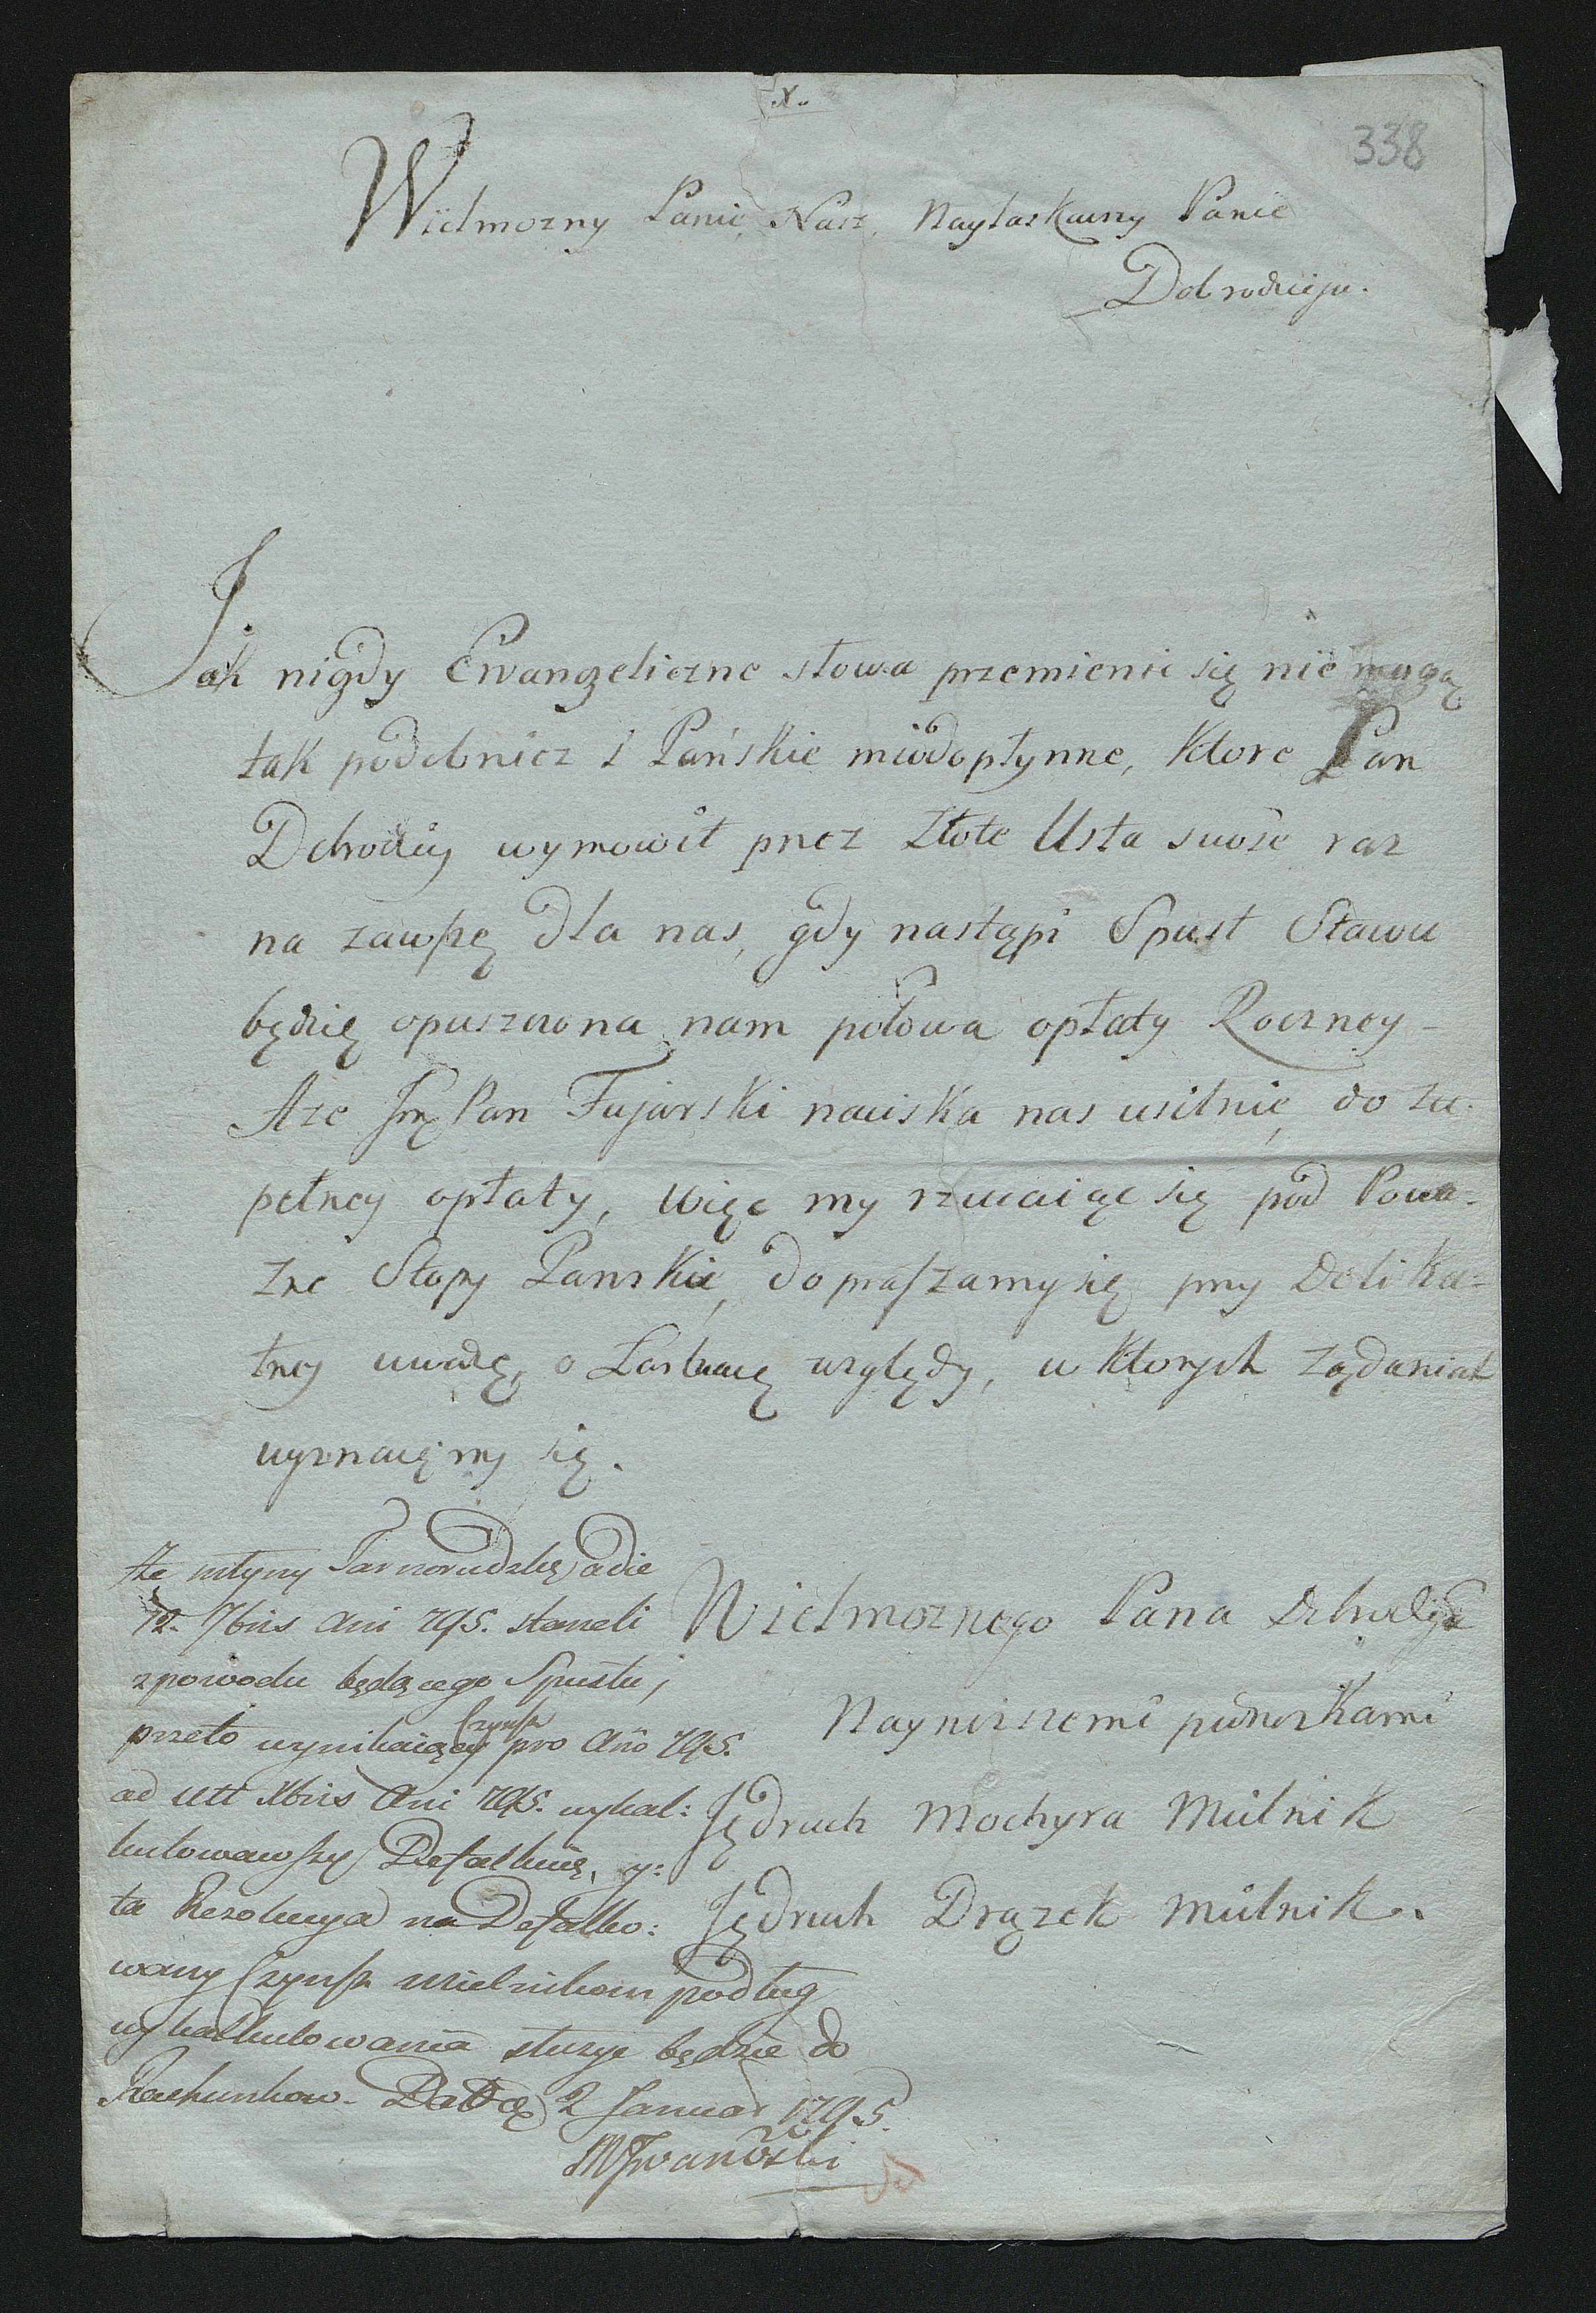 .X.
338
Wielmozny Panie, Nasz, Naylaskawy Panie
Dobrodzieju.
Jak nigdy Ewangeliczne słowa przemienic się nie mogą
tak podobniez i Pańskie miodopłynne, ktore Pan
Dobrodziey wymowił przez Złote Usta swoie raz
na zawszę dla nas, gdy nastąpi Spust Stawu
będzię opuszczona nam połowa opłaty Roczney
Aze Jmę Pan Fujarski naciska nas usilnię, do zu-
pełney opłaty, więc my rzucaiąc się pod Powa-
zne Stopy Panskie, dopraszamy się przy Delika-
tney uwadzę, o Łaskawę względy, w ktorych ządaniach
wyznaięmy się.
Wielmoznego Pana Dobrodzieja
Nayniszszemi podnozkami
Jędruch Mochyra Mulnik
Jędruch Drązek mulnik.
Ze młyny Tarnorudzkie a die
12. 7bris Ani 795. staneli
z powodu będącego Spustu,
przeto wynikaiący Czynsz pro Ano 795.
ad ult Xbris Ani 795. wykal:
kulowawszy Defalkuię, y:
ta Rezolucya na Defalko:
wany Czynsz Mielnikom podług
wykalkulowania słuzyc będzie do
Rachunkow. Datt 2 Januar 1795.
MIwanowski